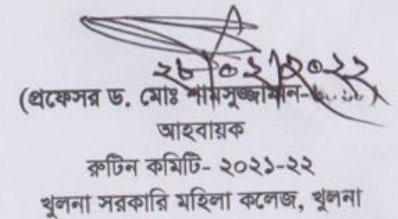 ২৮/০২/২০২২
(প্রফেসর ড. মোঃ শামসুজ্জামান-
আহবায়ক
রুটিন কমিটি- ২০২১-২২
খুলনা সরকারি মহিলা কলেজ, খুলনা